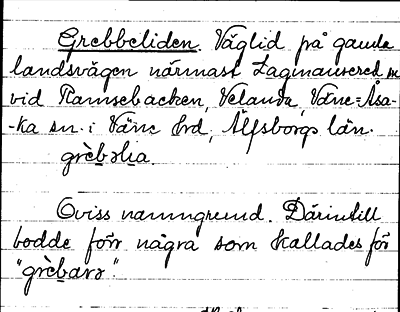 Grebbeliden. Väglid på gamla
landsvägen närmast Lagmansered
vid Ramsebacken, Velanda, Väne-Åsa-
-ka sn. i Väne hrd, Älfsborgs län.
grèbəlia.
Oviss namngrund. Därintill
bodde förr några som kallades för
"grèbarə".